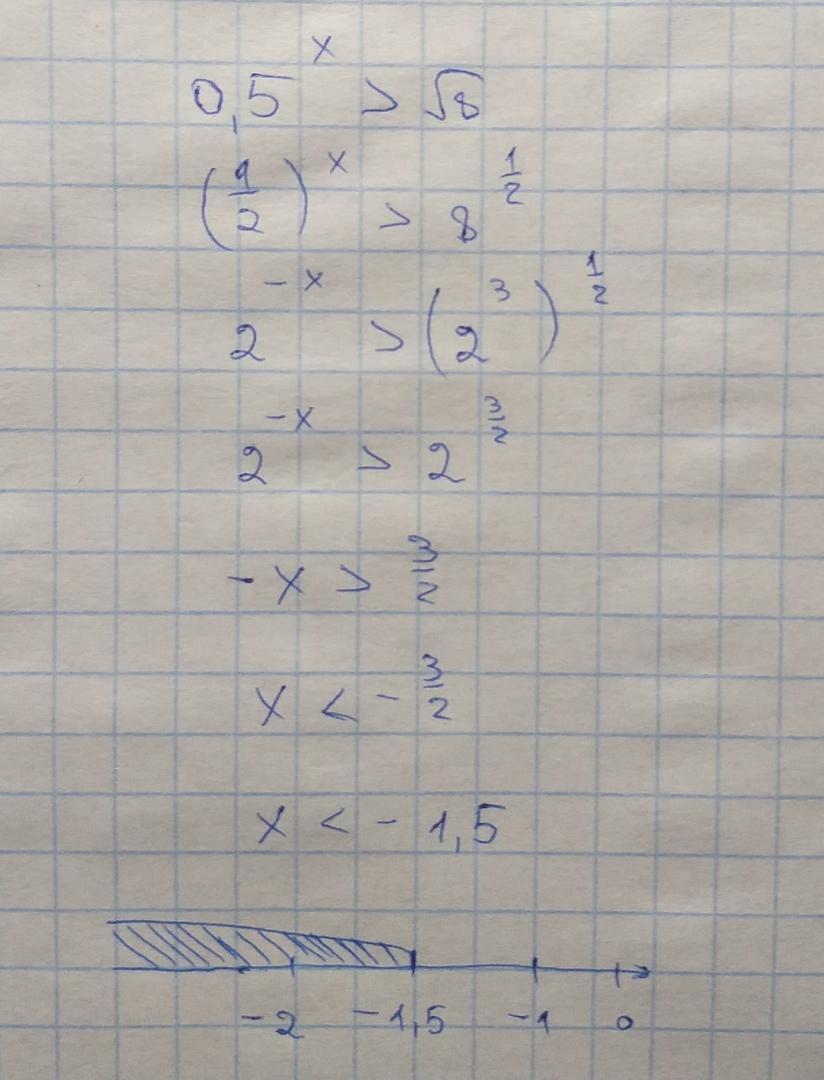 0,5^x > √8
(1/2)^x > 8^(1/2)
2^(-x) > (2^3)^(1/2)
2^(-x) > 2^(3/2)
-x > 3/2
x < - 3/2
x < - 1,5
-2 -1,5 -1 0